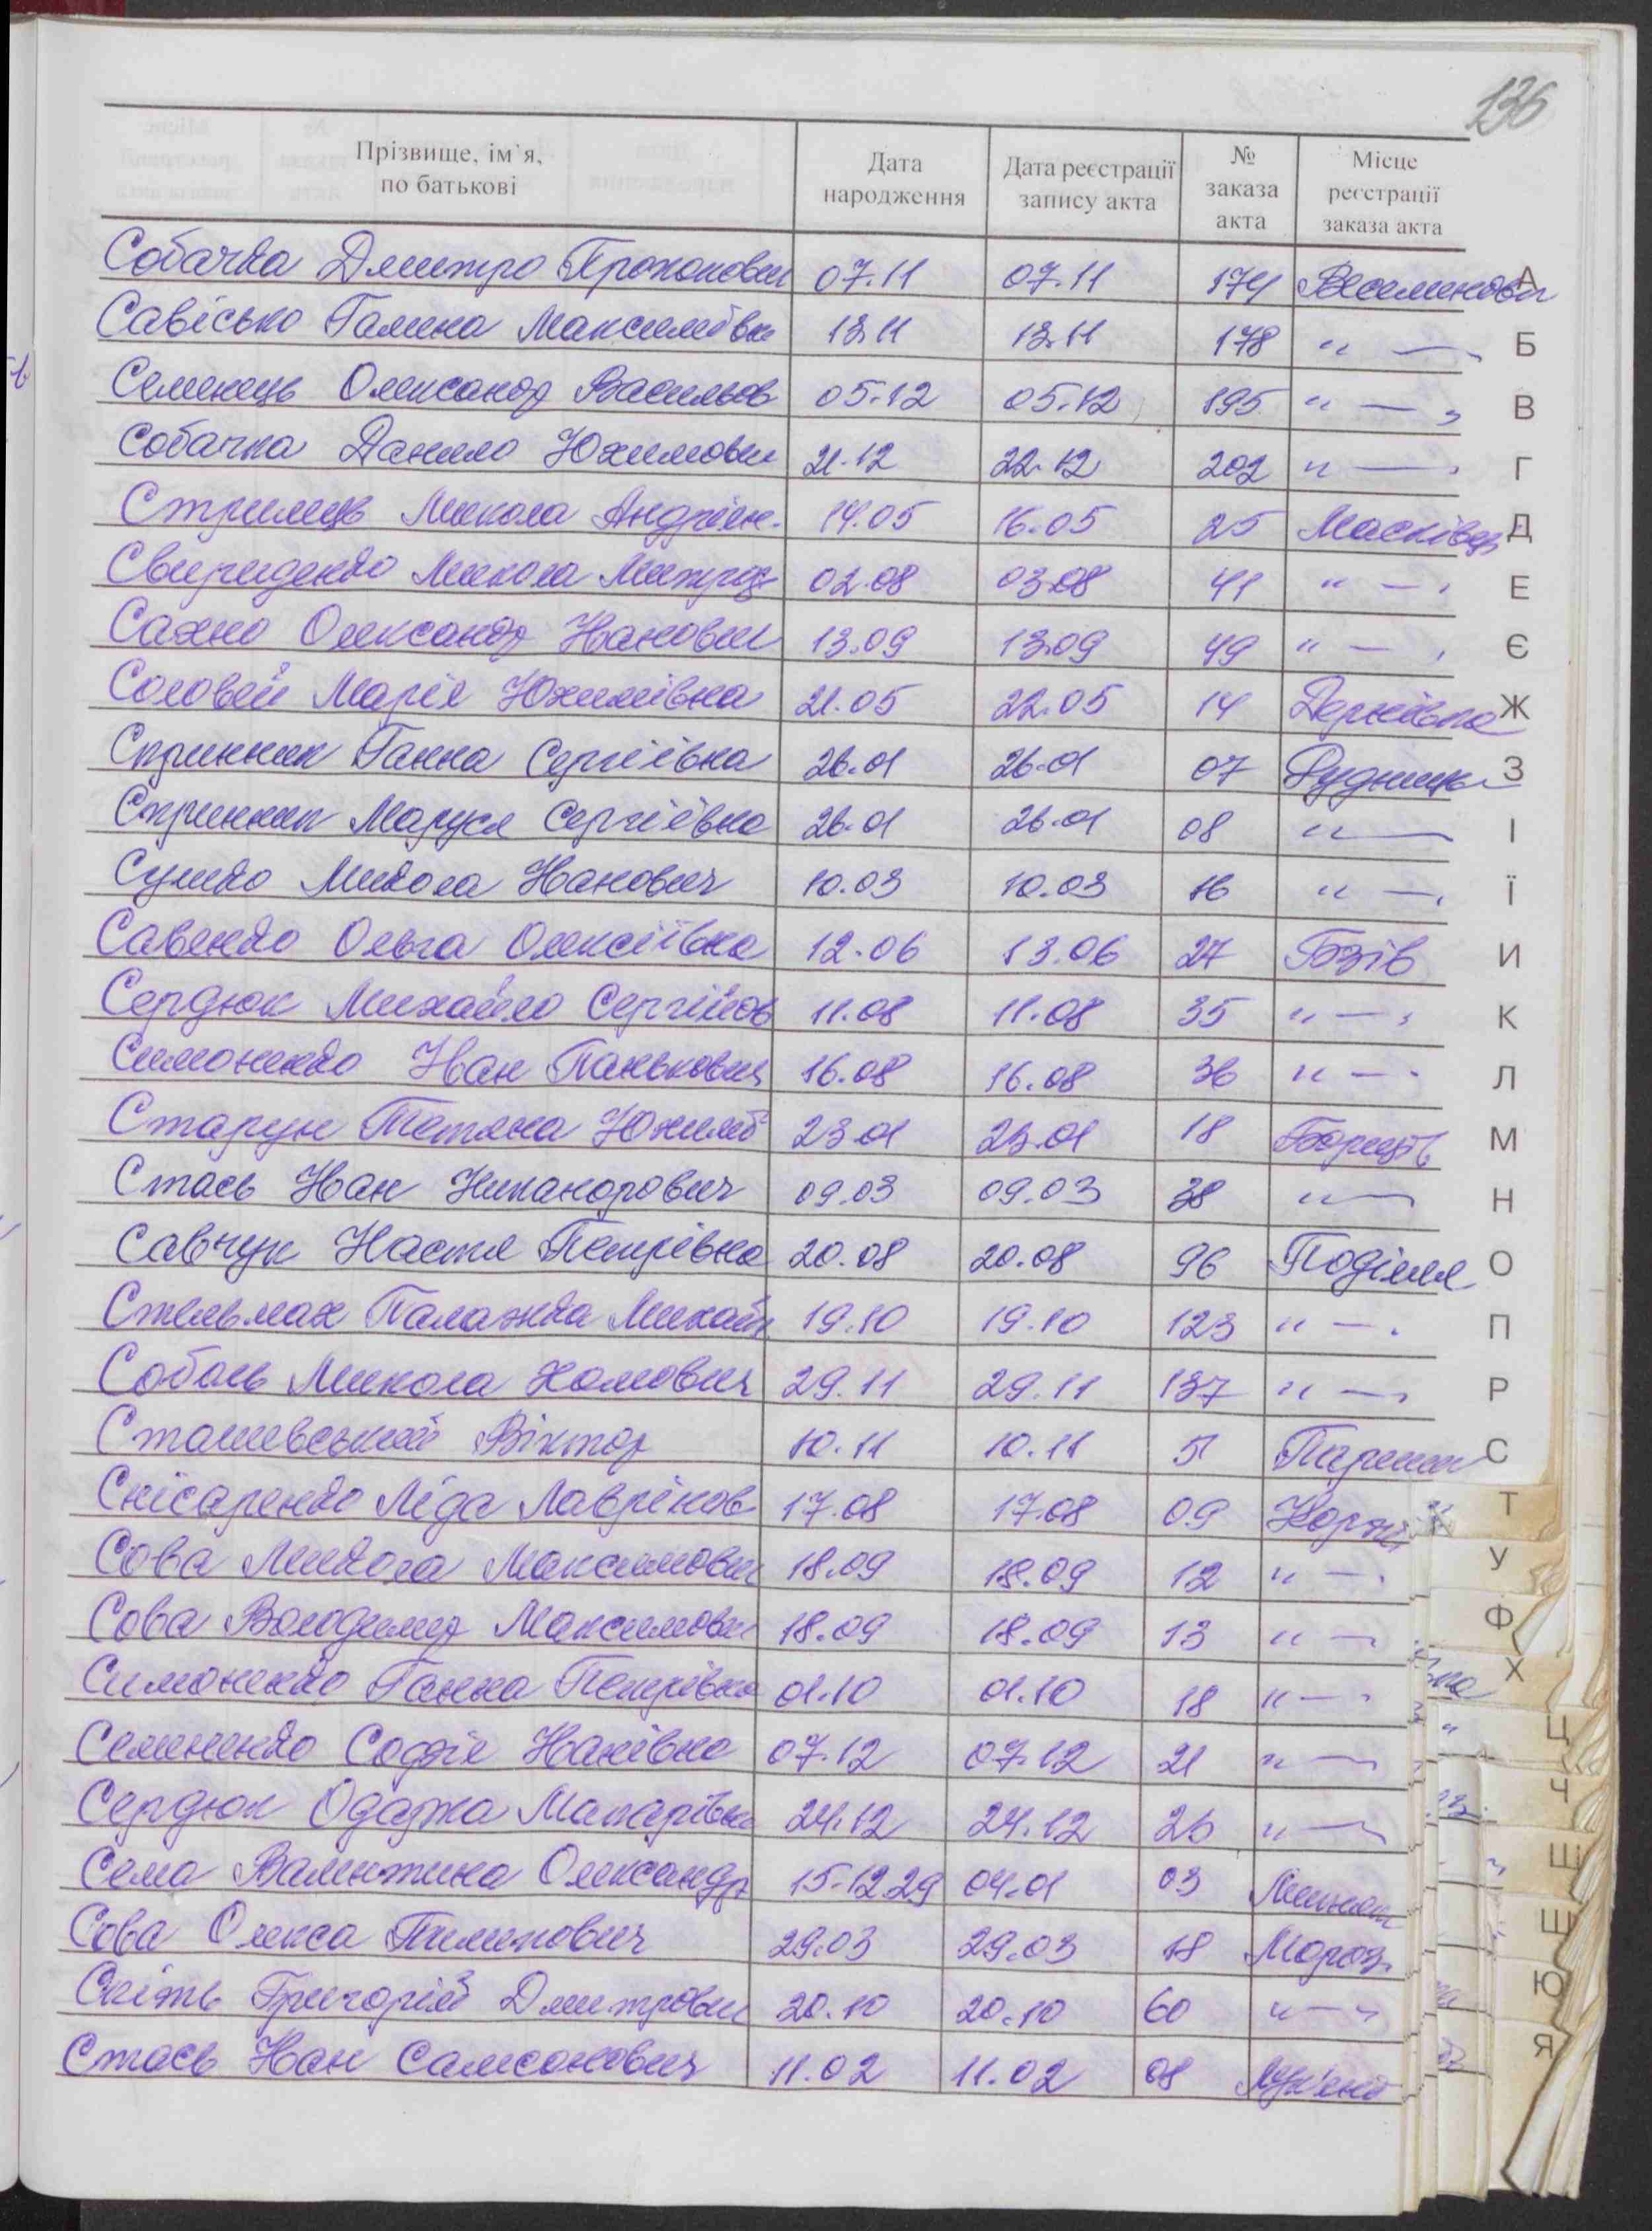 136
Прізвище, ім`я, по батькові Дата народження Дата реєстрації запису акта № заказа акта Місце реєстрації заказа акта
Собачка Дмитро Прокопович 07.11 07.11 174
Савісько Галина Максимівна 13.11 13.11 178 " — "
Семенець Олександр Васильов 05.12 05.12 195 " — "
Собачка Данило Юхимович 21.12 22.12 202 " — "
Стрилець Микола Андрійов. 14.05 16.05 25 Масківці
Свириденко Микола Митроф 02.08 03.08 41 " — "
Сахно Олександр Іванович 13.09 13.09 49 " — "
Соловей Марія Юхимівна 21.05 22.05 14 Дернівка
Скринник Ганна Сергіївна 26.01 26.01 07 Рудниць
Скринник Маруся Сергіївна 26.01 26.01 08 " —
Сулико Микола Іванович 10.03 10.03 16 " — "
Савенко Ольга Олексіївна 12.06 13.06 27 Бзів
Сердюк Михайло Сергійов 11.08 11.08 35 " — "
Симоненко Іван Панькович 16.08 16.08 36 " — "
Старун Тетяна Юхимів 23.01 23.01 18
Стась Іван Никанорович 09.03 09.03 38 " —
Савчук Настя Петрівна 20.08 20.08 96 Поділля
Стельмах Палажка Михайл 19.10 19.10 123 " — "
Соболь Микола Хомович 29.11 29.11 137 " — "
Сташевський Віктор 10.11 10.11 51
Снісаренко Ліда Лавріков 17.08 17.08 09 Коржі
Сова Микола Максимович 18.09 18.09 12 " — "
Сова Володимир Максимович 18.09 18.09 13 " —
Симоненко Ганна Петрівна 01.10 01.10 18 " — "
Семененко Софія Іванівна 07.12 07.12 21 " —
Сердюк Одарка Макарівна 24.12 24.12 26 " —
Сема Валентина Олександр 15.12.29 04.01 03
Сова Олекса Пилипович 29.03 29.03 18 Мороз.
Скіть Григорій Дмитрович 20.10 20.10 60 " — "
Стась Іван Самсонович 11.02 11.02 08
А
Б
В
Г
Д
Е
Є
Ж
З
І
Ї
И
К
Л
М
Н
О
П
Р
С
Т
У
Ф
Х
Ц
Ч
Ш
Щ
Ю
Я